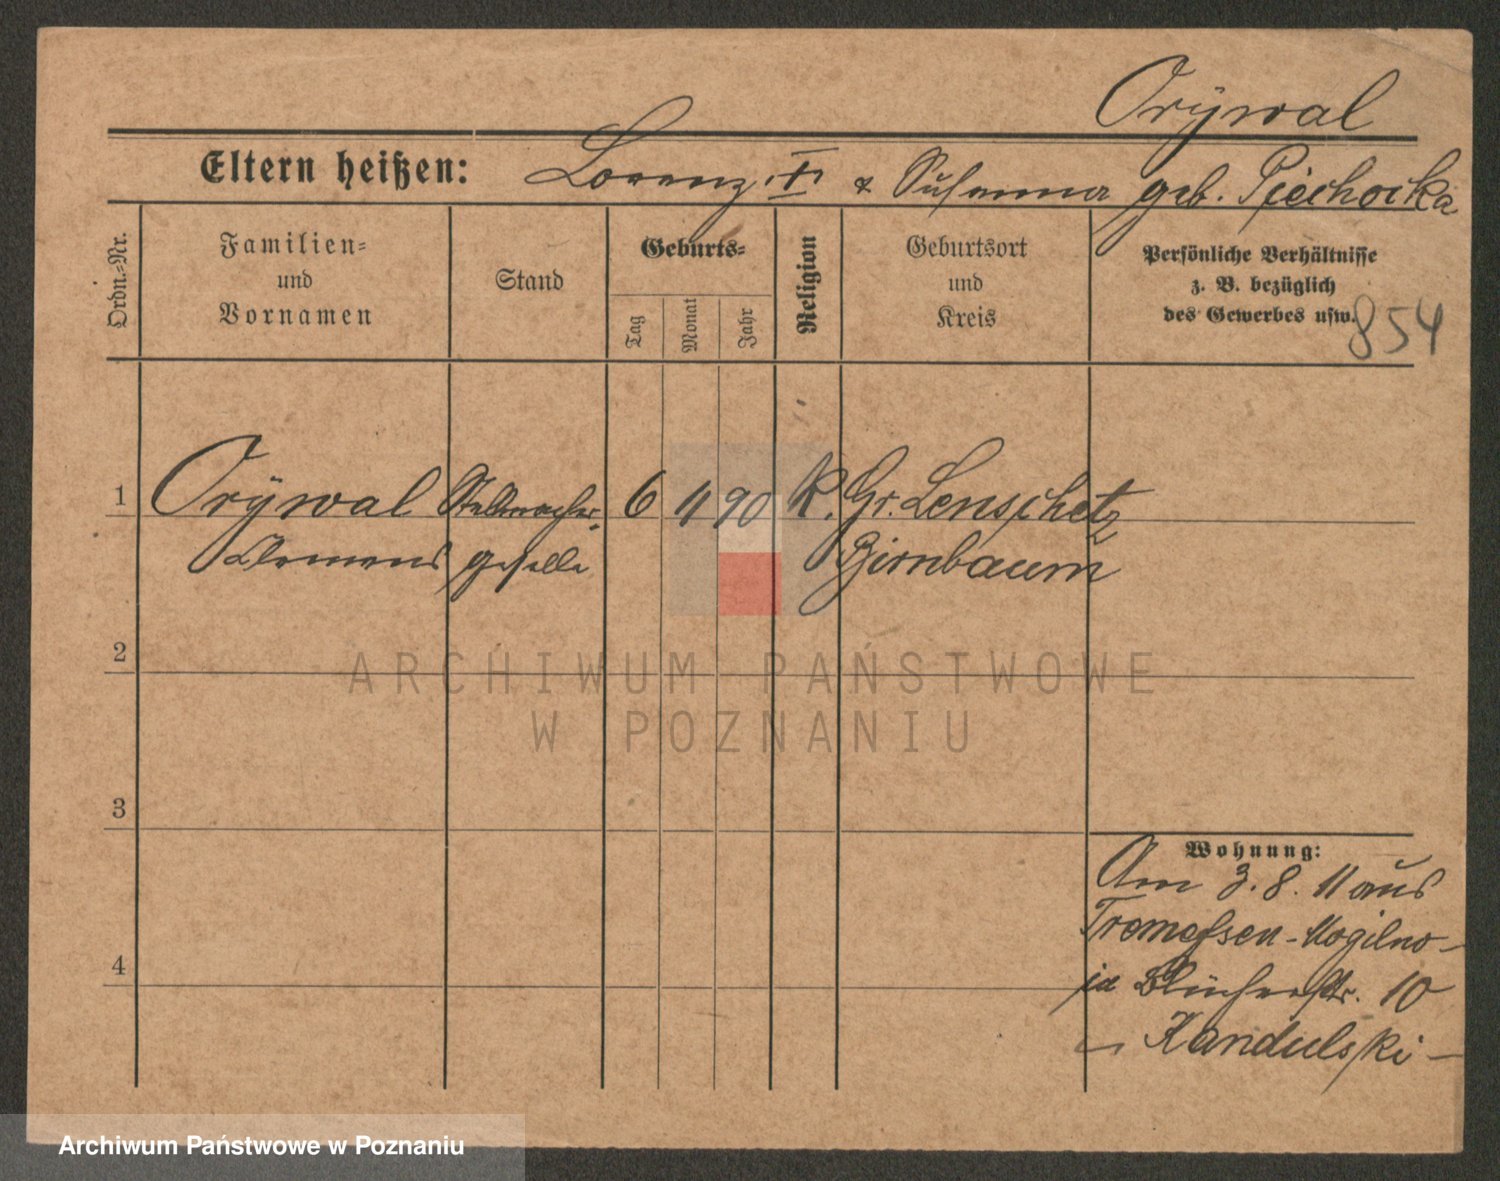 Orÿwal
Eltern heißen: Lorenz † & Susanna geb. Piechocka
Ordn.-Nr.
Familien- und Vornamen
Stand
Geburts-
Tag
Monat
Jahr
Religion
Geburtsort und Kreis
Persönliche Verhältnisse
z. B. bezüglich
des Gewerbes usw.
854
1 Orÿwal Stellmacher- 6 11 90 K. Gr. Lenschetz
Clemens geselle Birnbaum
2
3
4
Wohnung:
Am 3.8.11 aus
Tremessen-Mogilno-
Blücherstr. 10
Kandulski-
ARCHIWUM PAŃSTWOWE
W POZNANIU
Archiwum Państwowe w Poznaniu